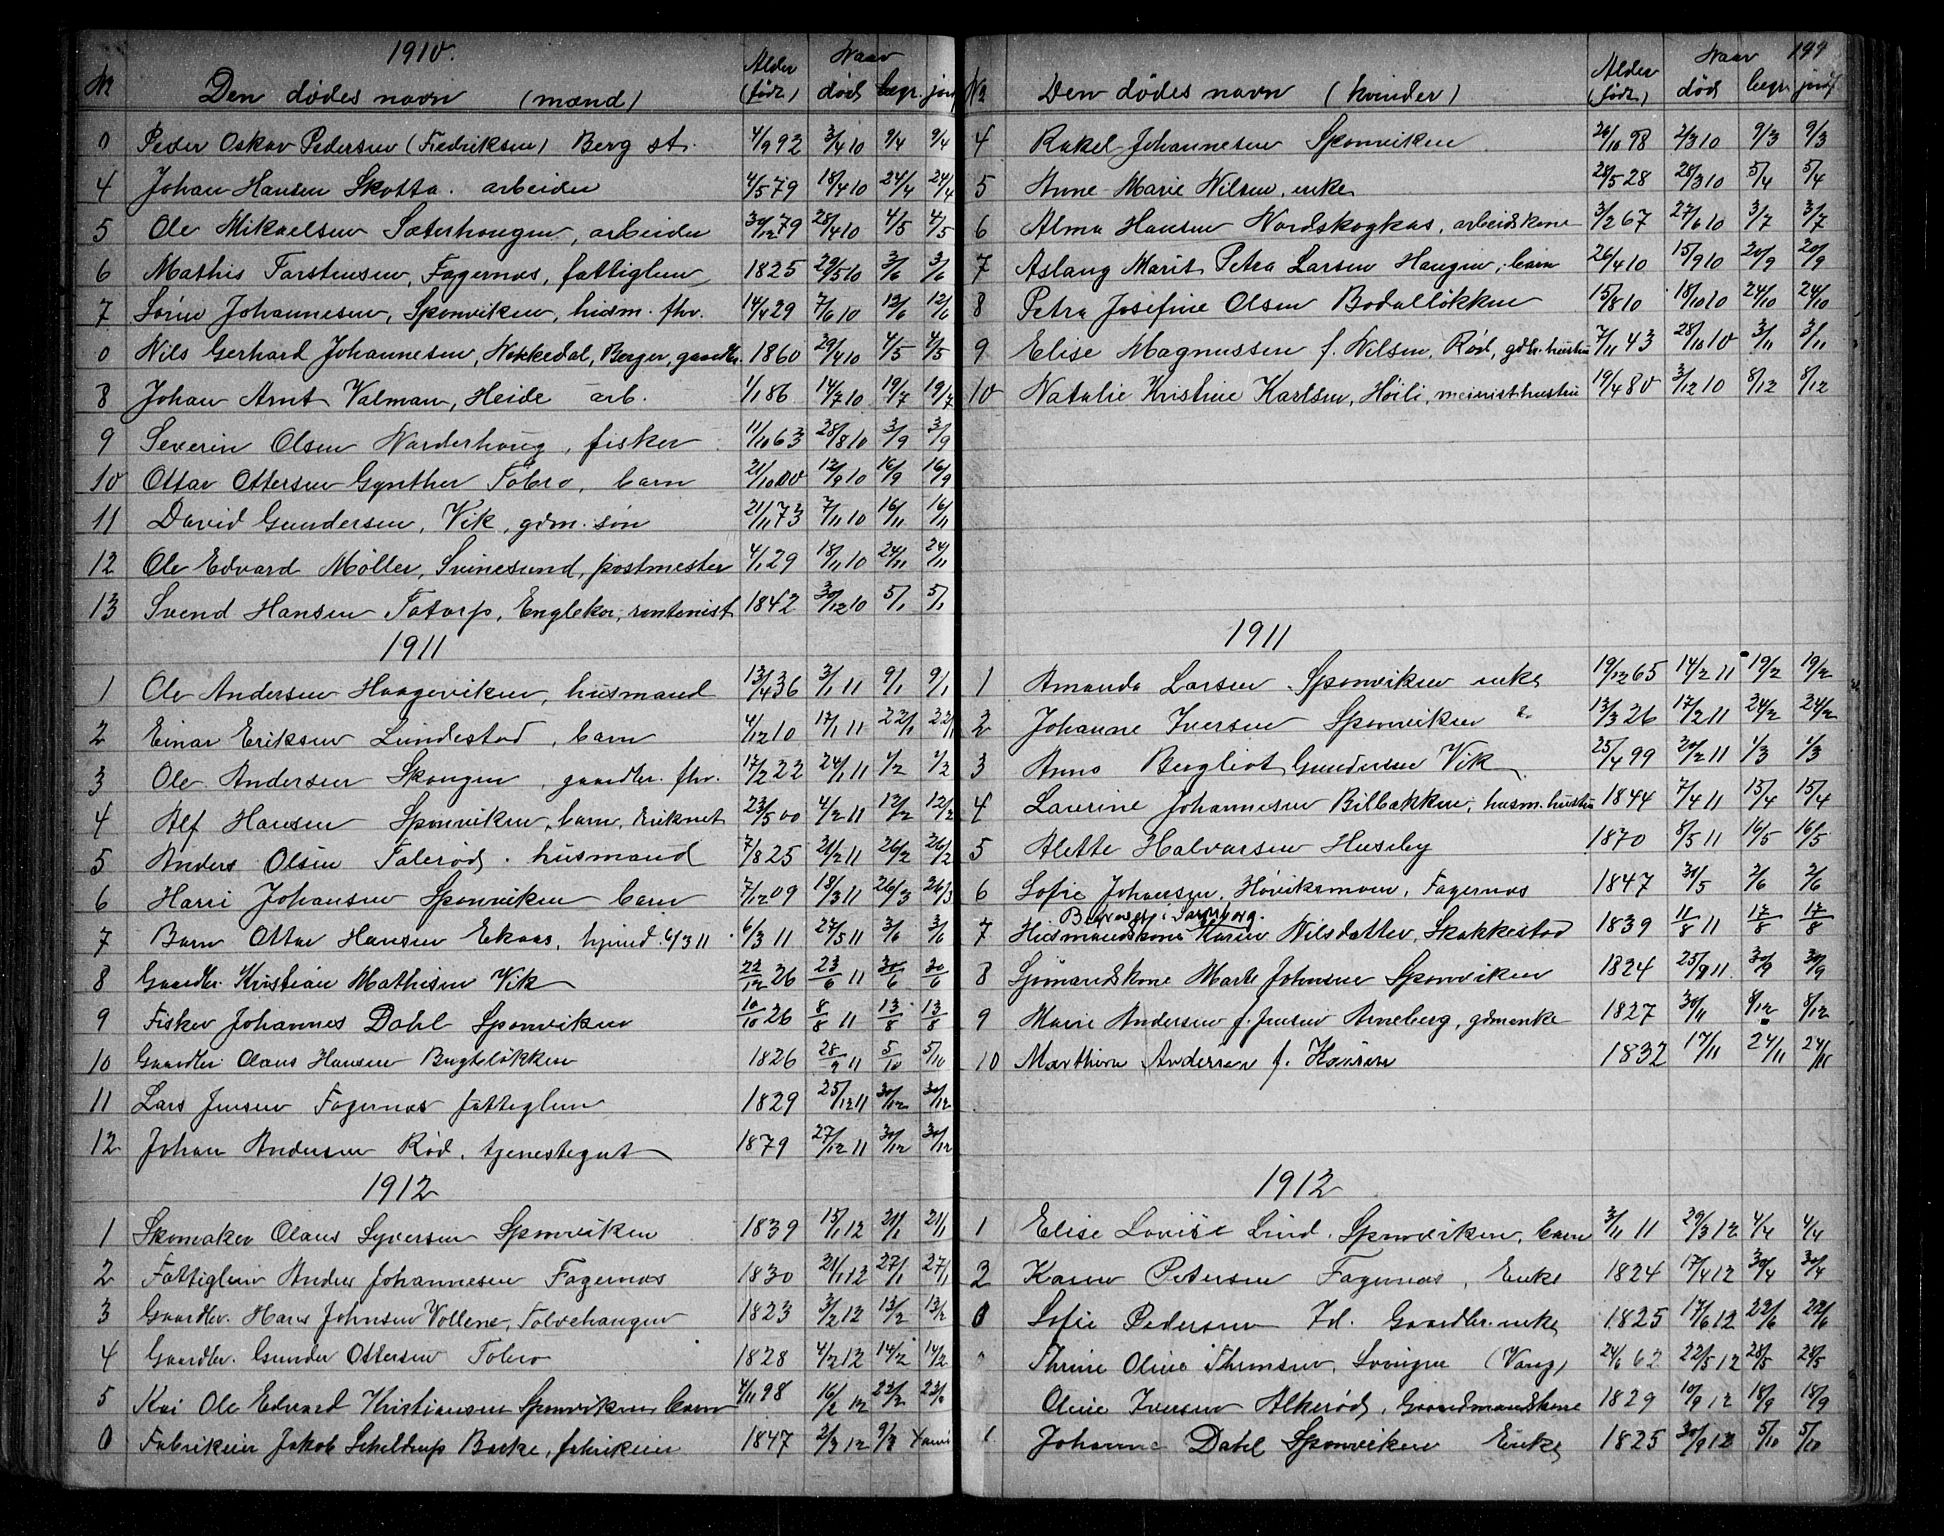 1910.
Nr Den dødes navn (mænd) Alder (født) Naar død begr. jordf.
0 Peder Oskar Pedersen (Fredriksen) Berg st. 4/9 92 3/4 10 9/4 9/4
4 Johan Hansen Skotta. arbeider 4/5 79 18/4 10 24/4 24/4
5 Ole Mikaelsen Sæterhaugen, arbeider 30/12 79 28/4 10 4/5 4/5
6 Mathis Torstensen, Fagernæs, fattiglem 1825 29/5 10 3/6 3/6
7 Sørine Johannesen, Sponviken, husm. fhv. 14/4 29 7/6 10 12/6 12/6
0 Nils Gerhard Johannesen, Nokkedal, Berger, gaardbr. 1860 29/4 10 4/5 4/5
8 Johan Arnt Valman, Heide arb. 1/1 86 14/7 10 19/7 19/7
9 Severin Olsen Norderhoug, fisker 11/10 63 28/8 10 3/9 3/9
10 Ottar Ottersen Gynther Tobro, barn 21/10 00 12/9 10 16/9 16/9
11 David Gundersen, Vik, gdm. søn 21/11 73 7/11 10 16/11 16/11
12 Ole Edvard Møller, Svinesund, postmester 4/1 29 18/11 10 24/11 24/11
13 Svend Hansen Totorp, Englekor, rentenist 1842 30/12 10 5/1 5/1
1911
1 Ole Andersen Haageviken, husmand 13/4 36 3/1 11 9/1 9/1
2 Einar Eriksen Lundestad, barn 4/12 10 17/1 11 22/1 22/1
3 Ole Andersen Skaugen, gaardbr. fhv. 17/2 22 24/1 11 1/2 1/2
4 Alf Hansen Sponviken, barn, 23/5 00 4/2 11 12/2 12/2
5 Anders Olsen Tolerød. husmand 7/8 25 21/2 11 26/2 26/2
6 Harri Johansen Sponviken barn 7/12 09 18/3 11 26/3 26/3
7 Barn Ottar Hansen Ekaas, hjmd. 6/3 11. 6/3 11 27/5 11 3/6 3/6
8 Gaardbr. Kristian Mathisen Vik 22/12 26 23/6 11 30/6 30/6
9 Fisker Johannes Dahl Sponviken 10/10 26 8/8 11 13/8 13/8
10 Gaardbr. Olaus Hansen Bugteløkken 1826 28/9 11 5/10 5/10
11 Lars Jensen Fagernæs fattiglem 1829 25/12 11 30/12 30/12
12 Johan Andersen Rød, tjenestegut 1879 27/12 11 30/12 30/12
1912
1 Skomaker Olaus Syversen Sponviken 1839 15/1 12 21/1 21/1
2 Fattiglem Anders Johannesen Fagernæs 1830 21/1 12 27/1 27/1
3 Gaardbr. Hans Johnsen Vollene, Torvehaugen 1823 3/2 12 13/2 13/2
4 Gaardbr. Gunder Ottersen Tobro 1828 4/2 12 14/2 14/2
5 Kai Ole Edvard Kristiansen Sponviken barn 4/11 98 16/2 12 22/2 22/2
0 Fabrikeier Jakob Scheldrup Backe, fabrikeier 1847 2/3 12 9/3
199
Nr Den dødes navn (kvinder) Alder (født) Naar død begr. jordf.
4 Rakel Johannesen Sponviken 26/10 98 2/3 10 9/3 9/3
5 Anne Marie Nilsen, enke 28/5 28 28/3 10 5/4 5/4
6 Alma Hansen Nordskogkas, arbeidskone 3/2 67 27/6 10 3/7 3/7
7 Aslaug Marit Petra Larsen Haugen, barn 26/4 10 15/9 10 20/9 20/9
8 Petra Josefine Olsen Bodalløkken 15/8 10 18/10 10 24/10 24/10
9 Elise Magnussen f. Nilsen, Rød, gdbr. hustru 7/11 43 28/10 10 3/11 3/11
10 Natalie Kristine Karlsen, Høili, meieristhustru 19/4 80 3/12 10 8/12 8/12
1911
1 Amanda Larsen Sponviken enke 19/12 65 14/2 11 19/2 19/2
2 Johanne Iversen Sponviken e. 13/3 26 17/2 11 24/2 24/2
3 Anna Bergliot Gundersen Vik 25/4 99 20/2 11 1/3 1/3
4 Laurine Johannesen Bilbakken, husm. hustru 1844 7/4 11 15/4 15/4
5 Alette Halvorsen Huseby 1870 8/5 11 16/5 16/5
6 Sofie Johansen, Høviksmoen, Fagernæs 1847 30/5 2/6 2/6
Begravet i Sarpsborg.
7 Husmandskone Karen Nilsdatter, Skakkestad 1839 11/8 11 17/8 17/8
8 Sjømandskone Marte Johnsen Sponviken 1824 25/9 11. 30/9 30/9
9 Marie Andersen f. Jensen Arneberg, gdmenke 1827 30/11 8/12 8/12
10 Marthine Andersen f. Hansen 1832 17/11 24/11 24/11
1912
1 Elise Lovise Lind. Sponviken, barn 3/11 11 29/3 12 4/4 4/4
2 Karen Petersen Fagernæs, Enke 1824 17/4 12 30/4 30/4
0 Sofie Pedersen Id. Gaardbr. enke 1825 17/6 12 22/6 22/6
Thrine Oline Thomsen, Svingen (Vang) 24/6 62 22/5 12 28/5 28/5
Oline Iversen Alkerød, Gaardmandskone 1829 10/9 12 18/9 18/9
Johanne Dahl Sponviken Enke 1825 30/9 12 5/10 5/10